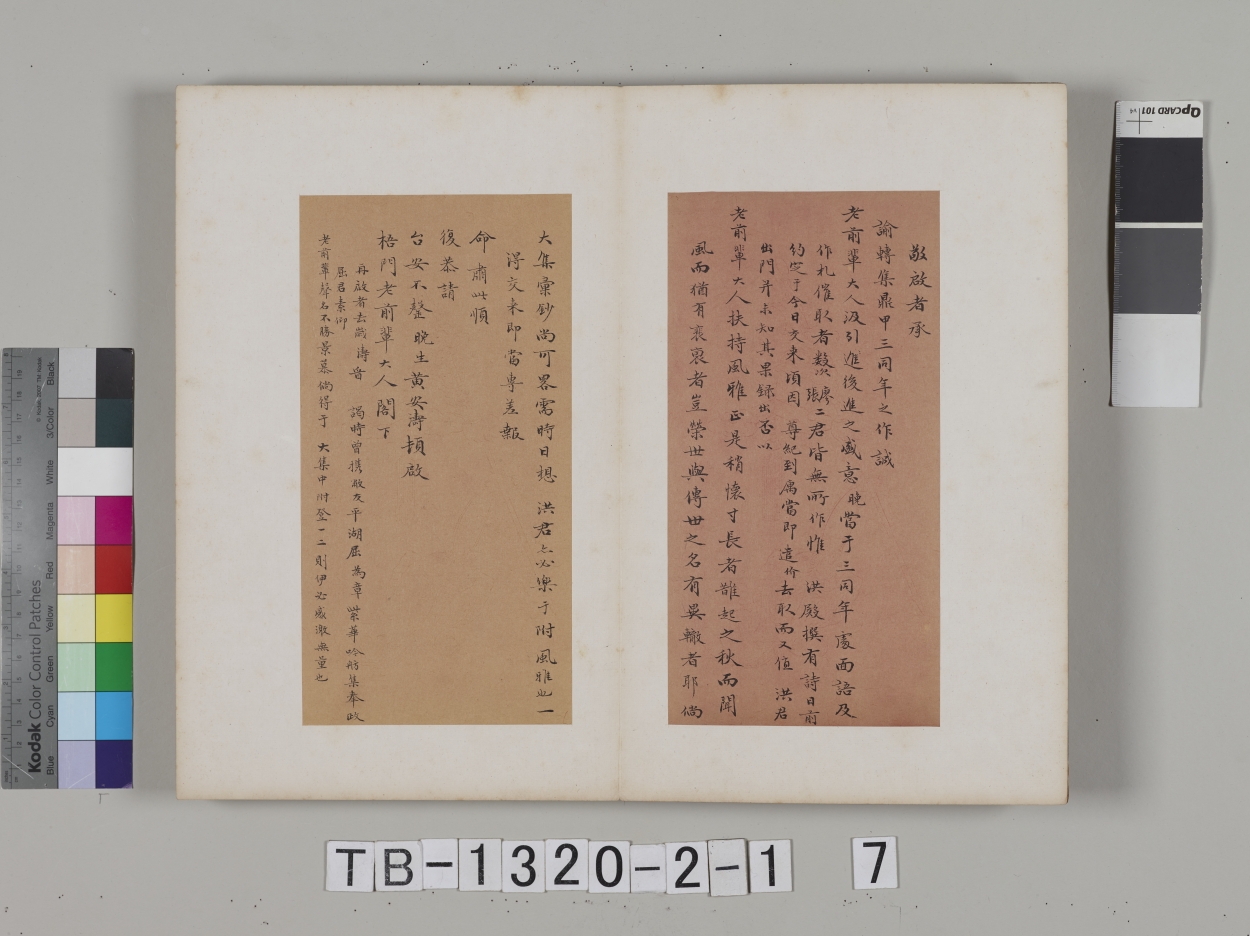 敬啟者承
諭轉集鼎甲三同年之作誠
老前輩大人汲引進後進之盛意晚當于三同年處面語及
作札催取者數次廖張二君皆無所作惟 洪殿撰有詩日前
約定于今日交來頃因 尊紀到處當即遣价去取而又值 洪君
出門并未知其果錄出否以
老前輩大人扶持風雅正是稍懷寸長者誰起之秋而聞
風而猶有裹裹者豈榮世與傳世之名有異轍者耶倘
大集彙鈔尚可畧需時日想 洪君亦必樂于附 風雅也一
得交來即當專差報
命肅此順
復恭請
台安不鏧 晚生黃安濤頓啟
梧門老前輩大人閣下
再啟者去歲濤晉 謁時曾攜敝友平湖屈為章紫華吟舫集奉政
屈君素仰
老前輩聲名不勝景慕倘得于 大集中附登一二則伊必感激無量也
Kodak Color Control Patches
Blue Cyan Green Yellow Red Magenta White 3/Color Black
QPCARD 101 v4
TB-1320-2-1 7